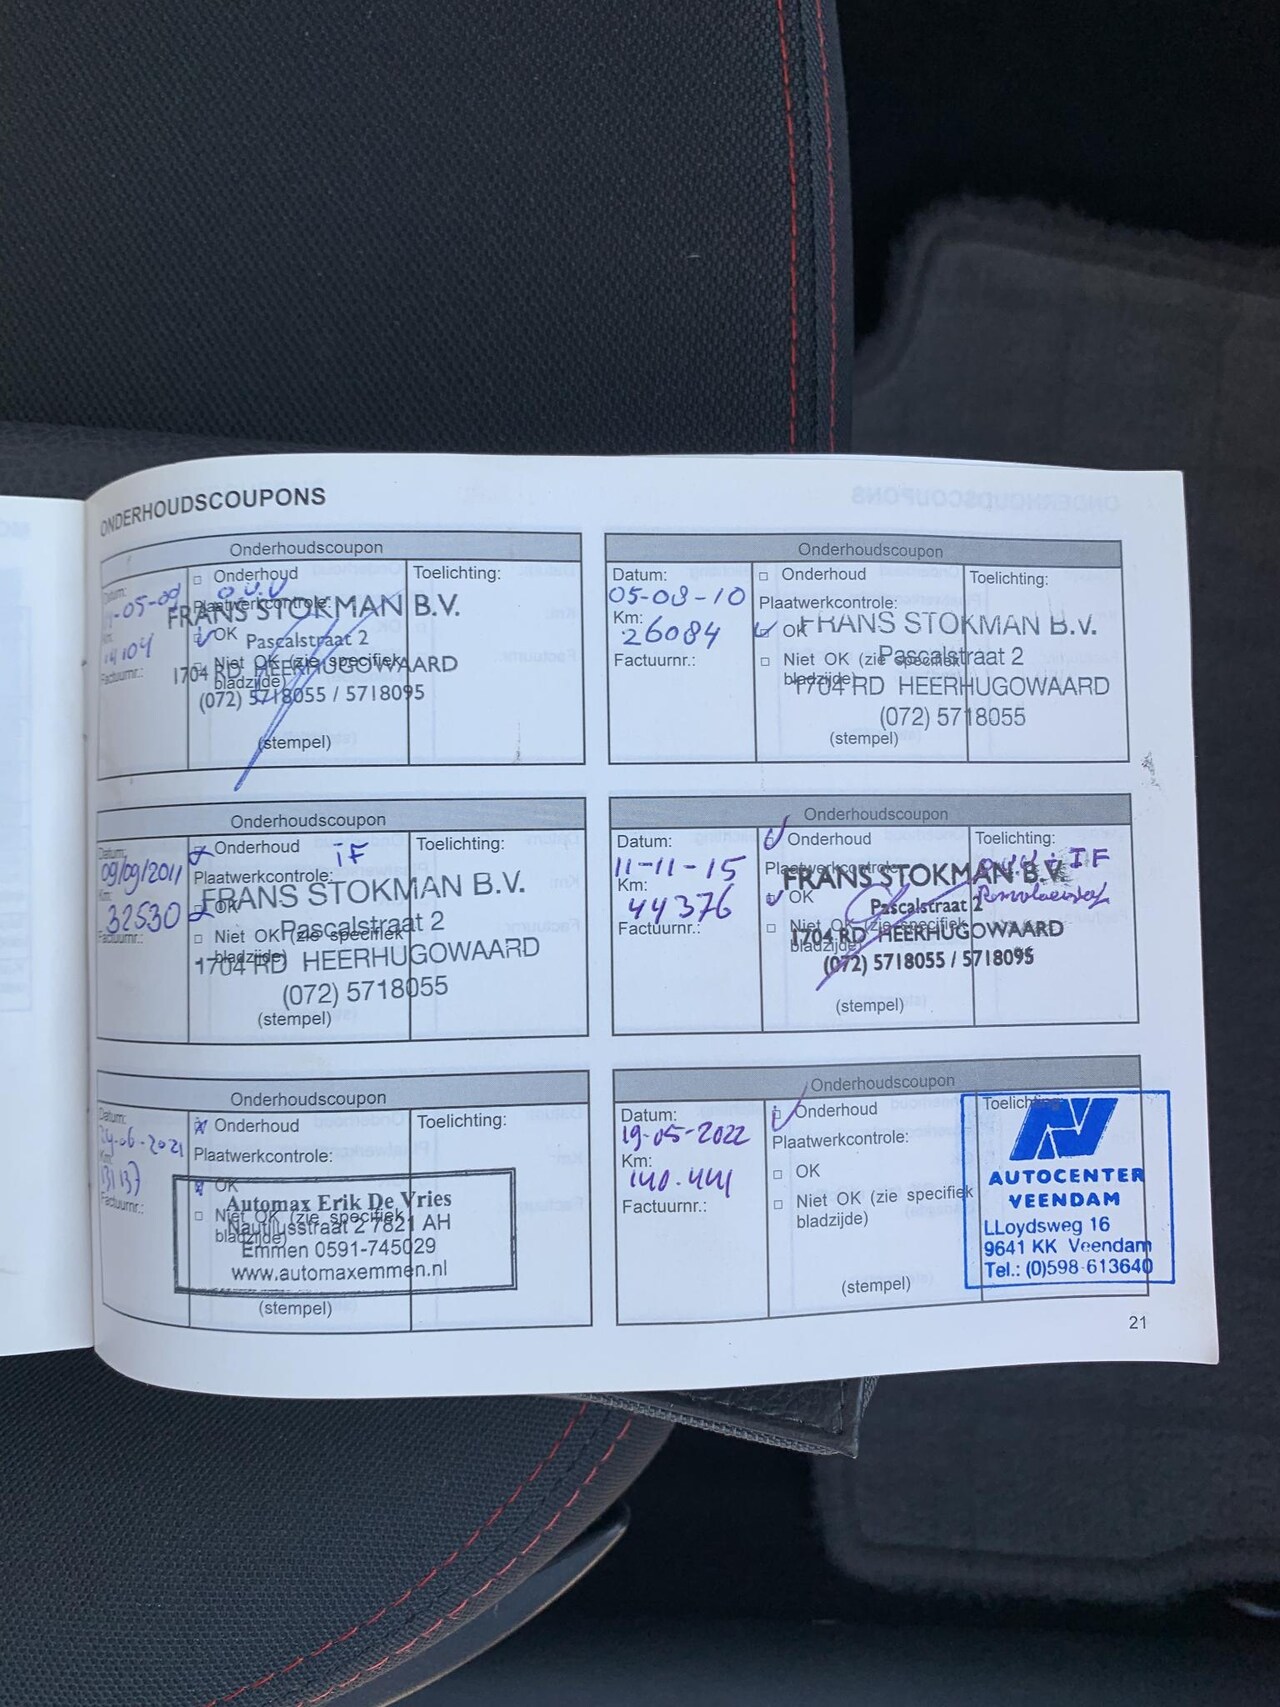 ONDERHOUDSCOUPONS
Onderhoudscoupon
Datum:
-05-09
Km:
Factuurnr.:
Onderhoud
Plaatwerkcontrole:
OK
Niet OK (zie specifiek
bladzijde)
FRANS STOKMAN B.V.
Pascalstraat 2
1704 RD HEERHUGOWAARD
(072) 5718055 / 5718095
(stempel)
Toelichting:
Onderhoudscoupon
Datum:
05-08-10
Km:
26084
Factuurnr.:
Onderhoud
Plaatwerkcontrole:
OK
Niet OK (zie specifiek
bladzijde)
FRANS STOKMAN B.V.
Pascalstraat 2
1704 RD HEERHUGOWAARD
(072) 5718055
(stempel)
Toelichting:
Onderhoudscoupon
Datum:
09/09/2011
Km:
32530
Factuurnr.:
Onderhoud
iF
Plaatwerkcontrole:
OK
Niet OK (zie specifiek
bladzijde)
FRANS STOKMAN B.V.
Pascalstraat 2
1704 RD HEERHUGOWAARD
(072) 5718055
(stempel)
Toelichting:
Onderhoudscoupon
Datum:
11-11-15
Km:
44376
Factuurnr.:
Onderhoud
Plaatwerkcontrole:
OK
Niet OK (zie specifiek
bladzijde)
FRANS STOKMAN B.V.
Pascalstraat 2
1704 RD HEERHUGOWAARD
(072) 5718055 / 5718095
(stempel)
Toelichting:
IF
Onderhoudscoupon
Datum:
-06-2021
Km:
Factuurnr.:
Onderhoud
Plaatwerkcontrole:
OK
Niet OK (zie specifiek
bladzijde)
Automax Erik De Vries
Nautilusstraat 2 7821 AH
Emmen 0591-745029
www.automaxemmen.nl
(stempel)
Toelichting:
Onderhoudscoupon
Datum:
19-05-2022
Km:
140.441
Factuurnr.:
Onderhoud
Plaatwerkcontrole:
OK
Niet OK (zie specifiek
bladzijde)
(stempel)
Toelichting:
AUTOCENTER
VEENDAM
LLoydsweg 16
9641 KK Veendam
Tel.: (0)598-613640
21